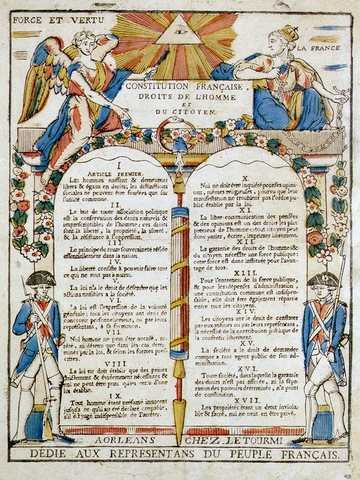 FORCE ET VERTU
LA FRANCE
CONSTITUTION FRANÇAISE,
DROITS DE L'HOMME
ET
DU CITOYEN.
I
ARTICLE PREMIER.
Les hommes naissent & demeurent
libres & égaux en droits; les distinctions
sociales ne peuvent être fondées que sur
l'utilité commune.
II.
Le but de toute association politique
est la conservation des droits naturels &
imprescriptibles de l'homme; ces droits
sont la liberté, la propriété, la sûreté,
& la résistance à l'oppression.
III.
Le principe de toute souveraineté réside
essentiellement dans la nation.
IV.
La liberté consiste à pouvoir faire tout
ce qui ne nuit pas à autrui.
V.
La loi n'a le droit de défendre que les
actions nuisibles à la société.
VI.
La loi est l'expression de la volonté
générale; tous les citoyens ont droit de
concourir personnellement, ou par leurs
représentans, à sa formation.
VII.
Nul homme ne peut être accusé, arrêté,
ni détenu que dans les cas déterminés
par la loi, & selon les formes prescrites.
VIII.
La loi ne doit établir que des peines
strictement & évidemment nécessaires &
nul ne peut être puni qu'en vertu d'une
loi établie.
IX.
Tout homme étant présumé innocent
jusqu'à ce qu'il ait été déclaré coupable,
s'il est jugé indispensable de l'arrêter.
X.
Nul ne doit être inquiété pour ses opinions,
mêmes religieuses, pourvu que leur
manifestation ne troublent pas l'ordre public
établi par la loi.
XI.
La libre communication des pensées
& des opinions est un des droits les plus
précieux de l'homme: tout citoyen peut
donc parler, écrire, imprimer librement.
XII.
La garantie des droits de l'homme & du
citoyen nécessite une force publique:
cette force est donc instituée pour l'avantage
de tous.
XIII.
Pour l'entretien de la force publique,
& pour les dépenses d'administration,
une contribution commune est indispensable,
elle doit être également répartie
entre tous les citoyens.
XIV.
Les citoyens ont le droit de constater
par eux mêmes ou par leurs représentans,
la nécessité de la contribution publique de
la consentir librement.
XV.
La société a le droit de demander
compte à tout agent public de son administration.
XVI.
Toute société, dans laquelle la garantie
des droits n'est pas assurée, ni la séparation
des pouvoirs déterminée, n'a point
de constitution.
XVII.
Les propriétés étant un droit inviolable
& sacré, nul ne peut en être privé.
A ORLEANS CHEZ LETOURMI
DÉDIÉ AUX REPRESENTANS DU PEUPLE FRANÇAIS.